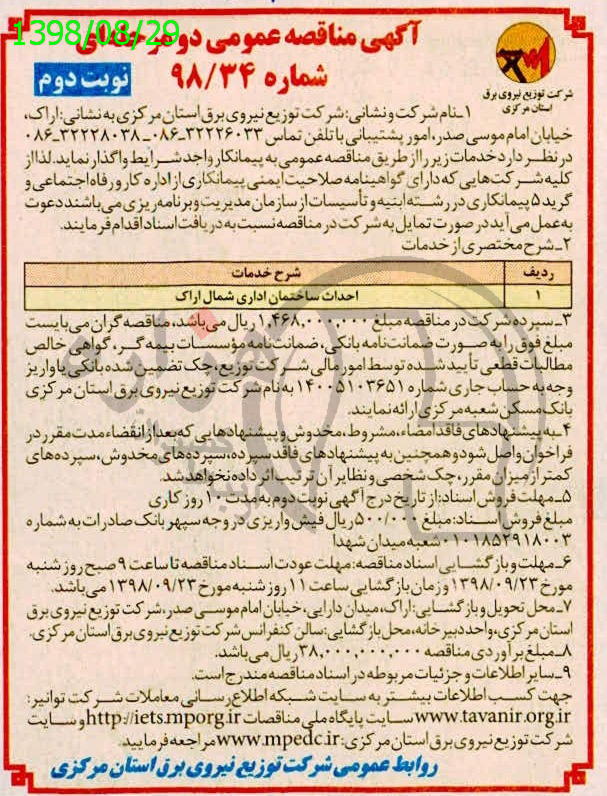 1398/08/29
آگهی مناقصه عمومی دو مرحله‌ای
شماره ۹۸/۳۴
نوبت دوم
شرکت توزیع نیروی برق
استان مرکزی
۱ـ نام شرکت و نشانی: شرکت توزیع نیروی برق استان مرکزی به نشانی: اراک،
خیابان امام موسی صدر، امور پشتیبانی با تلفن تماس ۳۲۲۲۶۰۳۳-۰۸۶ـ ۳۲۲۲۸۰۳۸-۰۸۶
در نظر دارد خدمات زیر را از طریق مناقصه عمومی به پیمانکار واجد شرایط واگذار نماید. لذا از
کلیه شرکت‌هایی که دارای گواهینامه صلاحیت ایمنی پیمانکاری از اداره کار و رفاه اجتماعی و
گرید ۵ پیمانکاری در رشته ابنیه و تأسیسات از سازمان مدیریت و برنامه‌ریزی می‌باشند دعوت
به عمل می‌آید در صورت تمایل به شرکت در مناقصه نسبت به دریافت اسناد اقدام فرمایند.
۲ـ شرح مختصری از خدمات
ردیف شرح خدمات
۱ احداث ساختمان اداری شمال اراک
۳ـ سپرده شرکت در مناقصه مبلغ ۱,۴۶۸,۰۰۰,۰۰۰ ریال می‌باشد، مناقصه‌گران می‌بایست
مبلغ فوق را به صورت ضمانت‌نامه بانکی، ضمانت‌نامه مؤسسات بیمه‌گر، گواهی خالص
مطالبات قطعی تأیید شده توسط امور مالی شرکت توزیع، چک تضمین شده بانکی یا واریز
وجه به حساب جاری شماره ۱۴۰۰۵۱۰۳۶۵۱ به نام شرکت توزیع نیروی برق استان مرکزی
بانک مسکن شعبه مرکزی ارائه نمایند.
۴ـ به پیشنهادهای فاقد امضاء، مشروط، مخدوش و پیشنهادهایی که بعد از انقضاء مدت مقرر در
فراخوان واصل شود و همچنین به پیشنهادهای فاقد سپرده، سپرده‌های مخدوش، سپرده‌های
کمتر از میزان مقرر، چک شخصی و نظایر آن ترتیب اثر داده نخواهد شد.
۵ـ مهلت فروش اسناد: از تاریخ درج آگهی نوبت دوم به مدت ۱۰ روز کاری
مبلغ فروش اسناد: مبلغ ۵۰۰/۰۰۰ ریال فیش واریزی در وجه سپهر بانک صادرات به شماره
۰۱۰۱۸۵۲۹۱۸۰۰۳ شعبه میدان شهدا
۶ـ مهلت و بازگشایی اسناد مناقصه: مهلت عودت اسناد مناقصه تا ساعت ۹ صبح روز شنبه
مورخ ۱۳۹۸/۰۹/۲۳ و زمان بازگشایی ساعت ۱۱ روز شنبه مورخ ۱۳۹۸/۰۹/۲۳ می‌باشد.
۷ـ محل تحویل و بازگشایی: اراک، میدان دارایی، خیابان امام موسی صدر، شرکت توزیع نیروی برق
استان مرکزی، واحد دبیرخانه، محل بازگشایی: سالن کنفرانس شرکت توزیع نیروی برق استان مرکزی.
۸ـ مبلغ برآوردی مناقصه ۳۸,۰۰۰,۰۰۰,۰۰۰ ریال می‌باشد.
۹ـ سایر اطلاعات و جزئیات مربوطه در اسناد مناقصه مندرج است.
جهت کسب اطلاعات بیشتر به سایت شبکه اطلاع‌رسانی معاملات شرکت توانیر:
www.tavanir.org.ir سایت پایگاه ملی مناقصات http://iets.mporg.ir و سایت
شرکت توزیع نیروی برق استان مرکزی: www.mpedc.ir مراجعه فرمایید.
روابط عمومی شرکت توزیع نیروی برق استان مرکزی